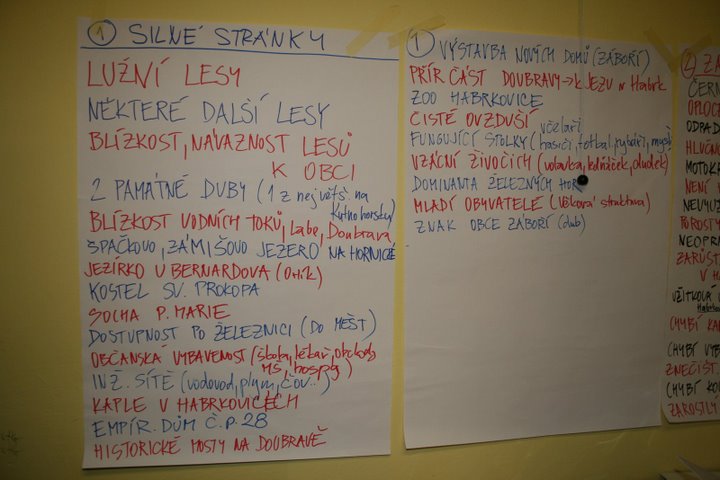 1 SILNÉ STRÁNKY
LUŽNÍ LESY
NĚKTERÉ DALŠÍ LESY
BLÍZKOST, NÁVAZNOST LESŮ
K OBCI
2 PAMÁTNÉ DUBY (1 z největš. na
Kutnohorsku)
BLÍZKOST VODNÍCH TOKŮ, Labe, Doubrava
ŠPAČKOVO, ZÁMIŠOVO JEZERO NA HORNICKÉ
JEZÍRKO U BERNARDOVA (Otík)
KOSTEL SV. PROKOPA
SOCHA P. MARIE
DOSTUPNOST PO ŽELEZNICI (DO MĚST)
OBČANSKÁ VYBAVENOST (škola, lékař, obchody,
MŠ, hospo)
INŽ. SÍTĚ (vodovod, plyn, čov...)
KAPLE V HABRKOVICÍCH
EMPÍR. DŮM Č.P. 28
HISTORICKÉ MOSTY NA DOUBRAVĚ
1 VÝSTAVBA NOVÝCH DOMŮ (ZÁBOŘÍ)
PŘÍR ČÁST DOUBRAVY → K JEZU v Habrk
ZOO HABRKOVICE
ČISTÉ OVZDUŠÍ
včelaři
FUNGUJÍCÍ SPOLKY (hasiči, fotbal, rybáři, mysl
VZÁCNÍ ŽIVOČICH (volavka, ledňáček, dudek)
DOMINANTA ŽELEZNÝCH HOR
MLADÍ OBYVATELÉ (věková struktura)
ZNAK OBCE ZÁBOŘÍ (dub)
2 ZÁ
ČERN
OPLOC
ODPAD
HLUČNO
MOTOKR
NENÍ
NEVYUŽ
POROSTY
NEOPR
ZARŮST
V H
UŽITKOVÁ
Habrko
CHYBÍ KA
CHYBÍ VYB
ZNEČIŠT
CHYBÍ KO
ZAROSTLÝ